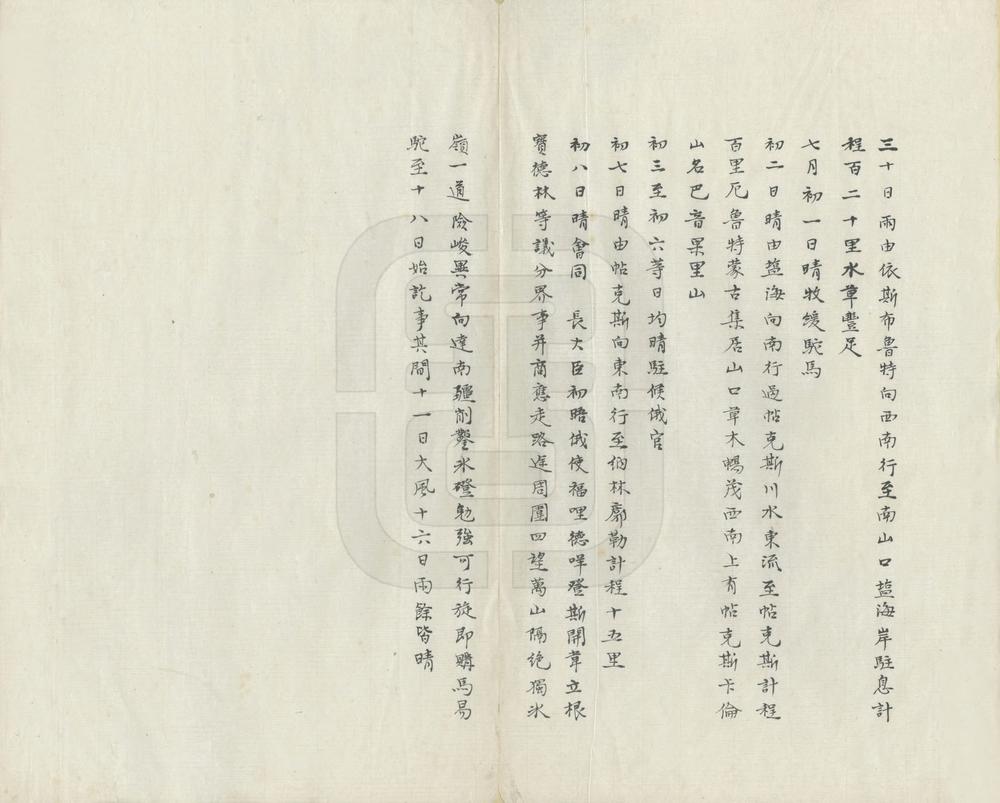 三十日雨由依斯布魯特向西南行至南山口盐海岸駐息計
程百二十里水草豐足
七月初一日晴牧緩駝馬
初二日晴由盐海向南行過帖克斯川水東流至帖克斯計程
百里厄魯特蒙古集居山口草木暢茂西南上有帖克斯卡倫
山名巴音杲里山
初三至初六等日均晴駐候俄官
初七日晴由帖克斯向東南行至納林廓勒計程十五里
初八日晴會同 長大臣初晤俄使福哩德咩登斯開韋立根
賓德林等議分界事并商應走路逕周圍四望萬山隔絕獨氷
嶺一道險峻異常向達南疆削鑿氷磴勉強可行旋即購馬易
駝至十八日始訖事其間十一日大風十六日雨餘皆晴